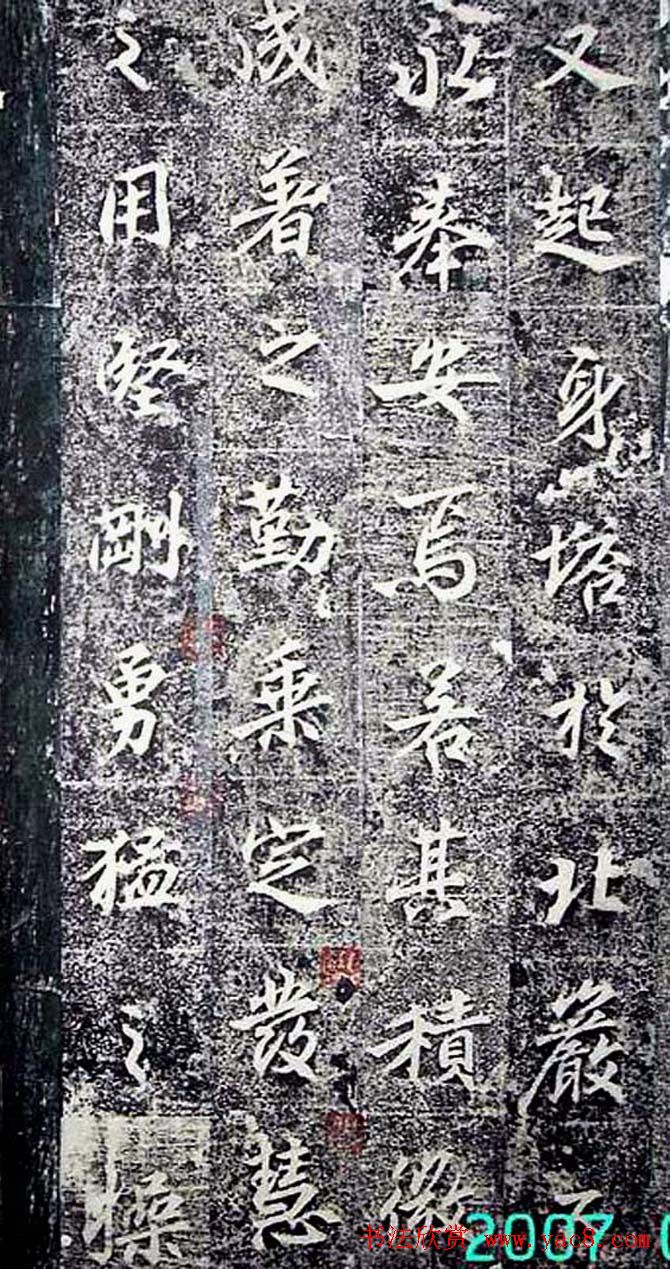 又起身塔於北巖
奉安焉若其積微
成著之勤乘定發慧
之用堅剛勇猛之操
书法欣赏 www.yac8.com
2007